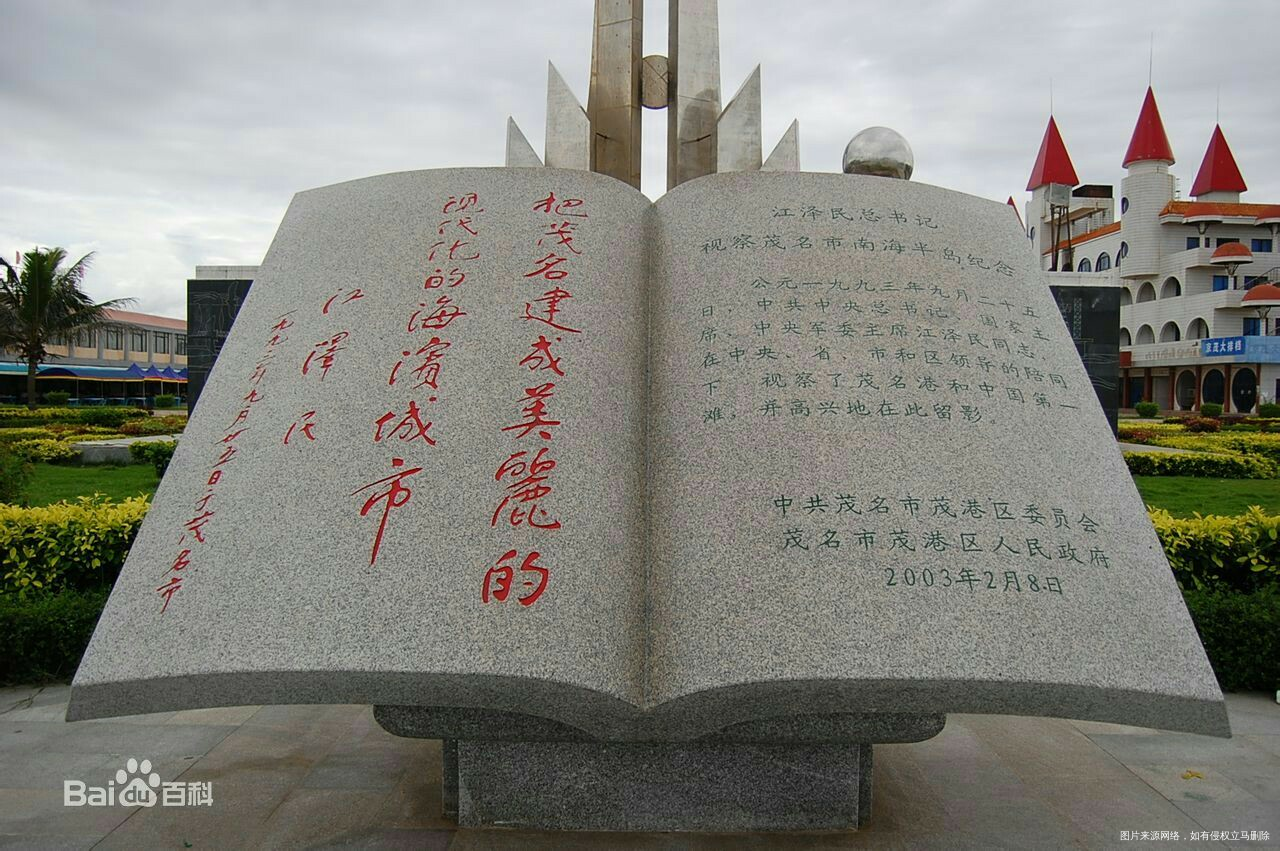 把茂名建成美麗的
现代化的海濱城市
江澤民
一九九三年九月廿五日于茂名市
江泽民总书记
视察茂名市南海半岛纪念
公元一九九三年九月二十五
日，中共中央总书记、国家主
席、中央军委主席江泽民同志
在中央、省、市和区领导的陪同
下，视察了茂名港和中国第一
滩，并高兴地在此留影。
中共茂名市茂港区委员会
茂名市茂港区人民政府
2003年2月8日
京茂大排档
Bai百科
图片来源网络，如有侵权立马删除